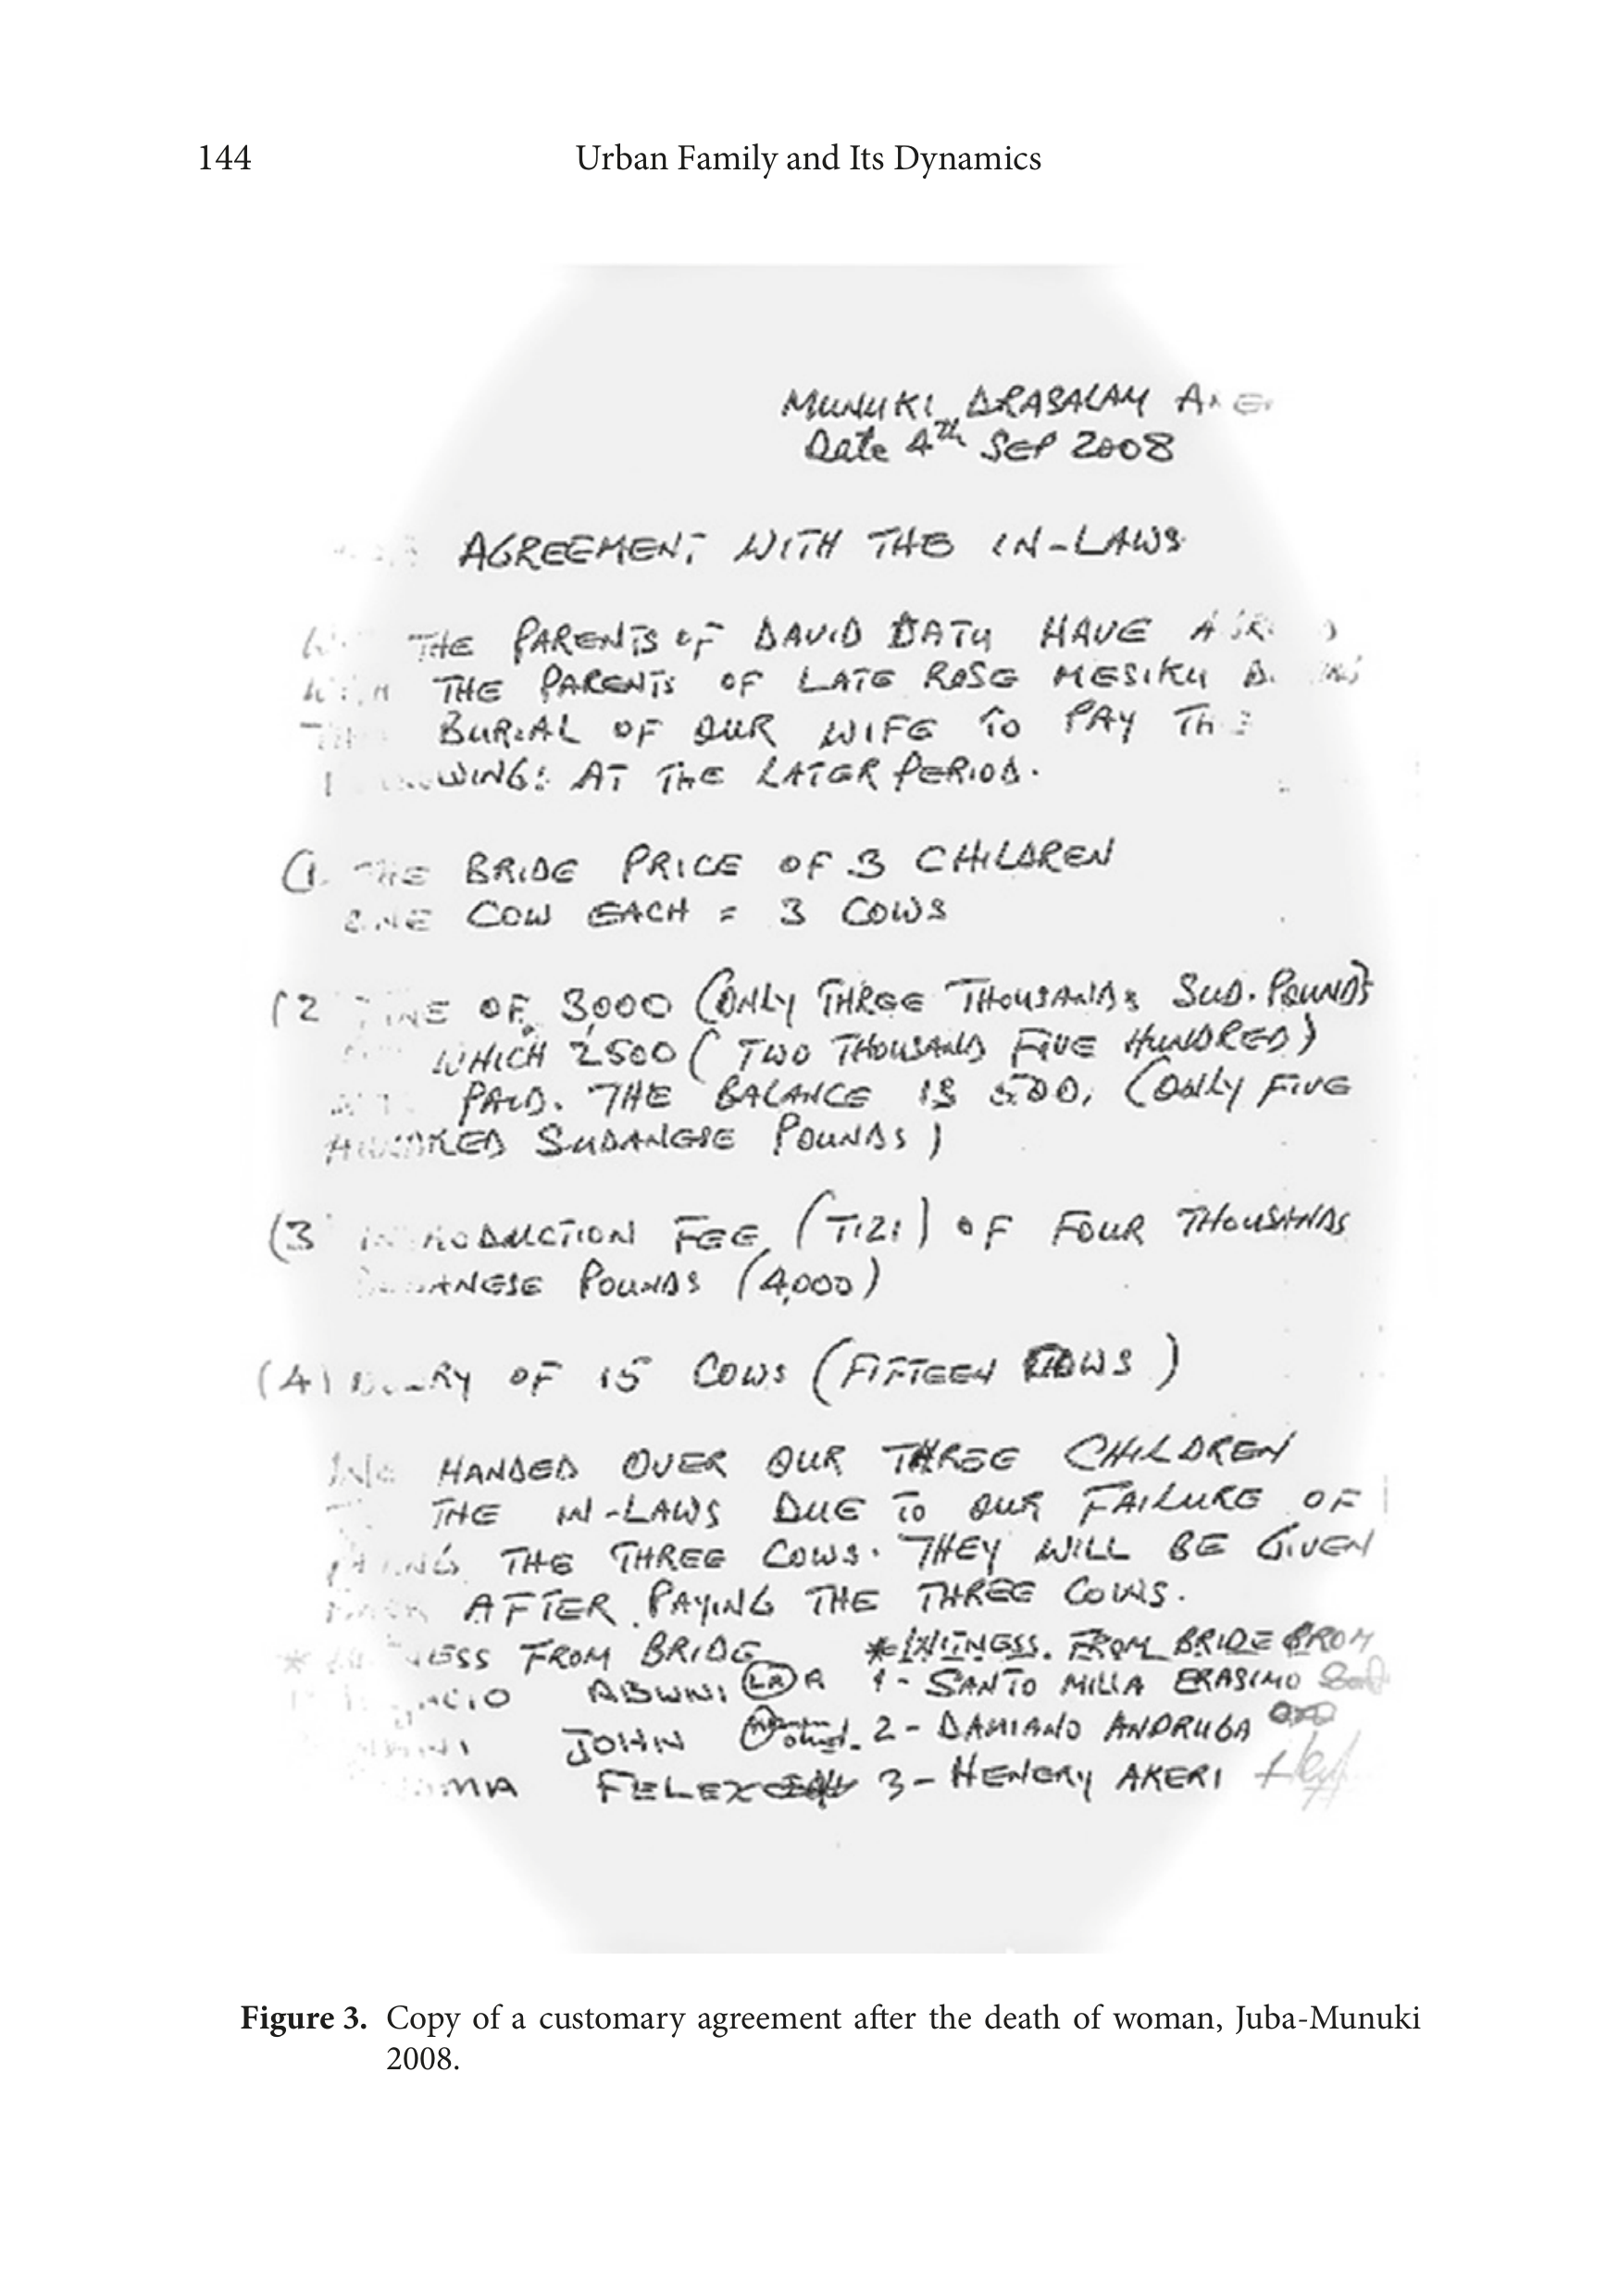 144 Urban Family and Its Dynamics
MUNUKI DRASALAM
Date 4th SEP 2008
AGREEMENT WITH THE IN-LAWS
THE PARENTS OF DAVID DATU HAVE
THE PARENTS OF LATE ROSE MESIKU
BURIAL OF OUR WIFE TO PAY THE
AT THE LATER PERIOD.
(1. THE BRIDE PRICE OF 3 CHILDREN
ONE COW EACH = 3 COWS
(2 FINE OF 3,000 (ONLY THREE THOUSANDS SUD. POUNDS}
WHICH 2500 (TWO THOUSAND FIVE HUNDRED)
PAID. THE BALANCE IS 500, (ONLY FIVE
HUNDRED SUDANESE POUNDS)
(3 INTRODUCTION FEE, (TIZI) OF FOUR THOUSANDS
SUDANESE POUNDS (4,000)
(4) OF 15 COWS (FIFTEEN COWS)
HANDED OVER OUR THREE CHILDREN
THE IN-LAWS DUE TO OUR FAILURE OF
THE THREE COWS. THEY WILL BE GIVEN
AFTER PAYING THE THREE COWS.
* WITNESS FROM BRIDE *WITNESS. FROM BRIDE GROM
ABUNI 1- SANTO MILLA ERASIMO
JOHN 2- DAMIANO ANDRUGA
FELEX 3- HENERY AKERI
Figure 3. Copy of a customary agreement after the death of woman, Juba-Munuki
2008.